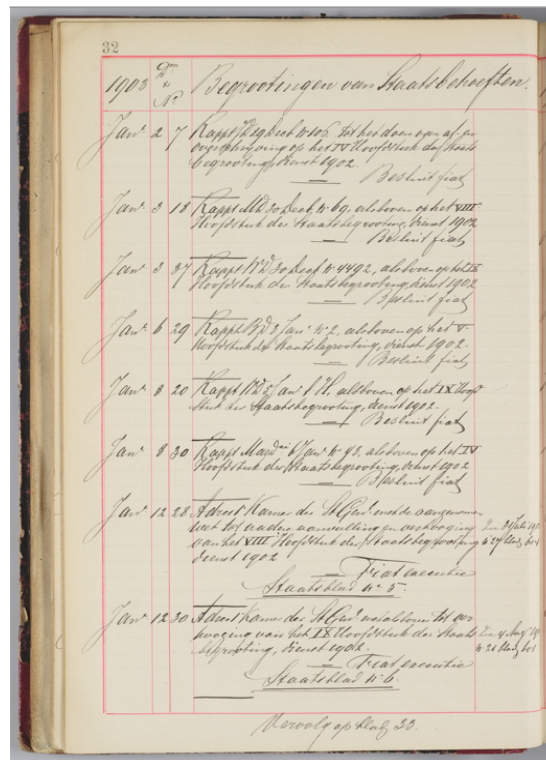 32
1903 Dm & No Begrootingen van Staatsbehoeften.
Janr 2 7 Rappt Jd 29 Decb No 106. tot het doen van af- en
overschrijving op het IV Hoofdstuk der Staats
begrooting, dienst 1902.
— Besluit fiat
Janr 3 18 Rappt Md 30 Decb. No 69. als boven op het VIII
Hoofdstuk der Staatsbegrooting, dienst 1902
— Besluit fiat
Janr 3 37 Rappt Wd 30 Decb No 4492, als boven op het IX
Hoofdstuk der Staatsbegrooting, dienst 1902
— Besluit fiat
Janr 6 29 Rappt Bd 3 Janr No 2. als boven op het V
Hoofdstuk der Staatsbegrooting, dienst 1902.
— Besluit fiat
Janr 8 20 Rappt Wd 5 Janr als boven op het IX Hoofd
stuk der Staatsbegrooting, dienst 1902.
— Besluit fiat
Janr 8 30 Rappt 6 Janr No 43. als boven op het IV
Hoofdstuk der Staatsbegrooting, dienst 1902
— Besluit fiat
Janr 12 28 Adres Kamer der St Genl aangenomen
wet tot nadere aanvulling en verhooging
van het VIII Hoofdstuk der Staatsbegrooting
dienst 1902
— Fiat executie
Staatsblad No 5.
Zie 31 Juli
No 27 bladz
Janr 12 30 Adres Kamer der St Genl als boven tot ver
hooging van het IX Hoofdstuk der Staats
begrooting, dienst 1902.
— Fiat executie
Staatsblad No 6.
Zie 4 Aug
No 21 bladz
Vervolg op bladz 33.